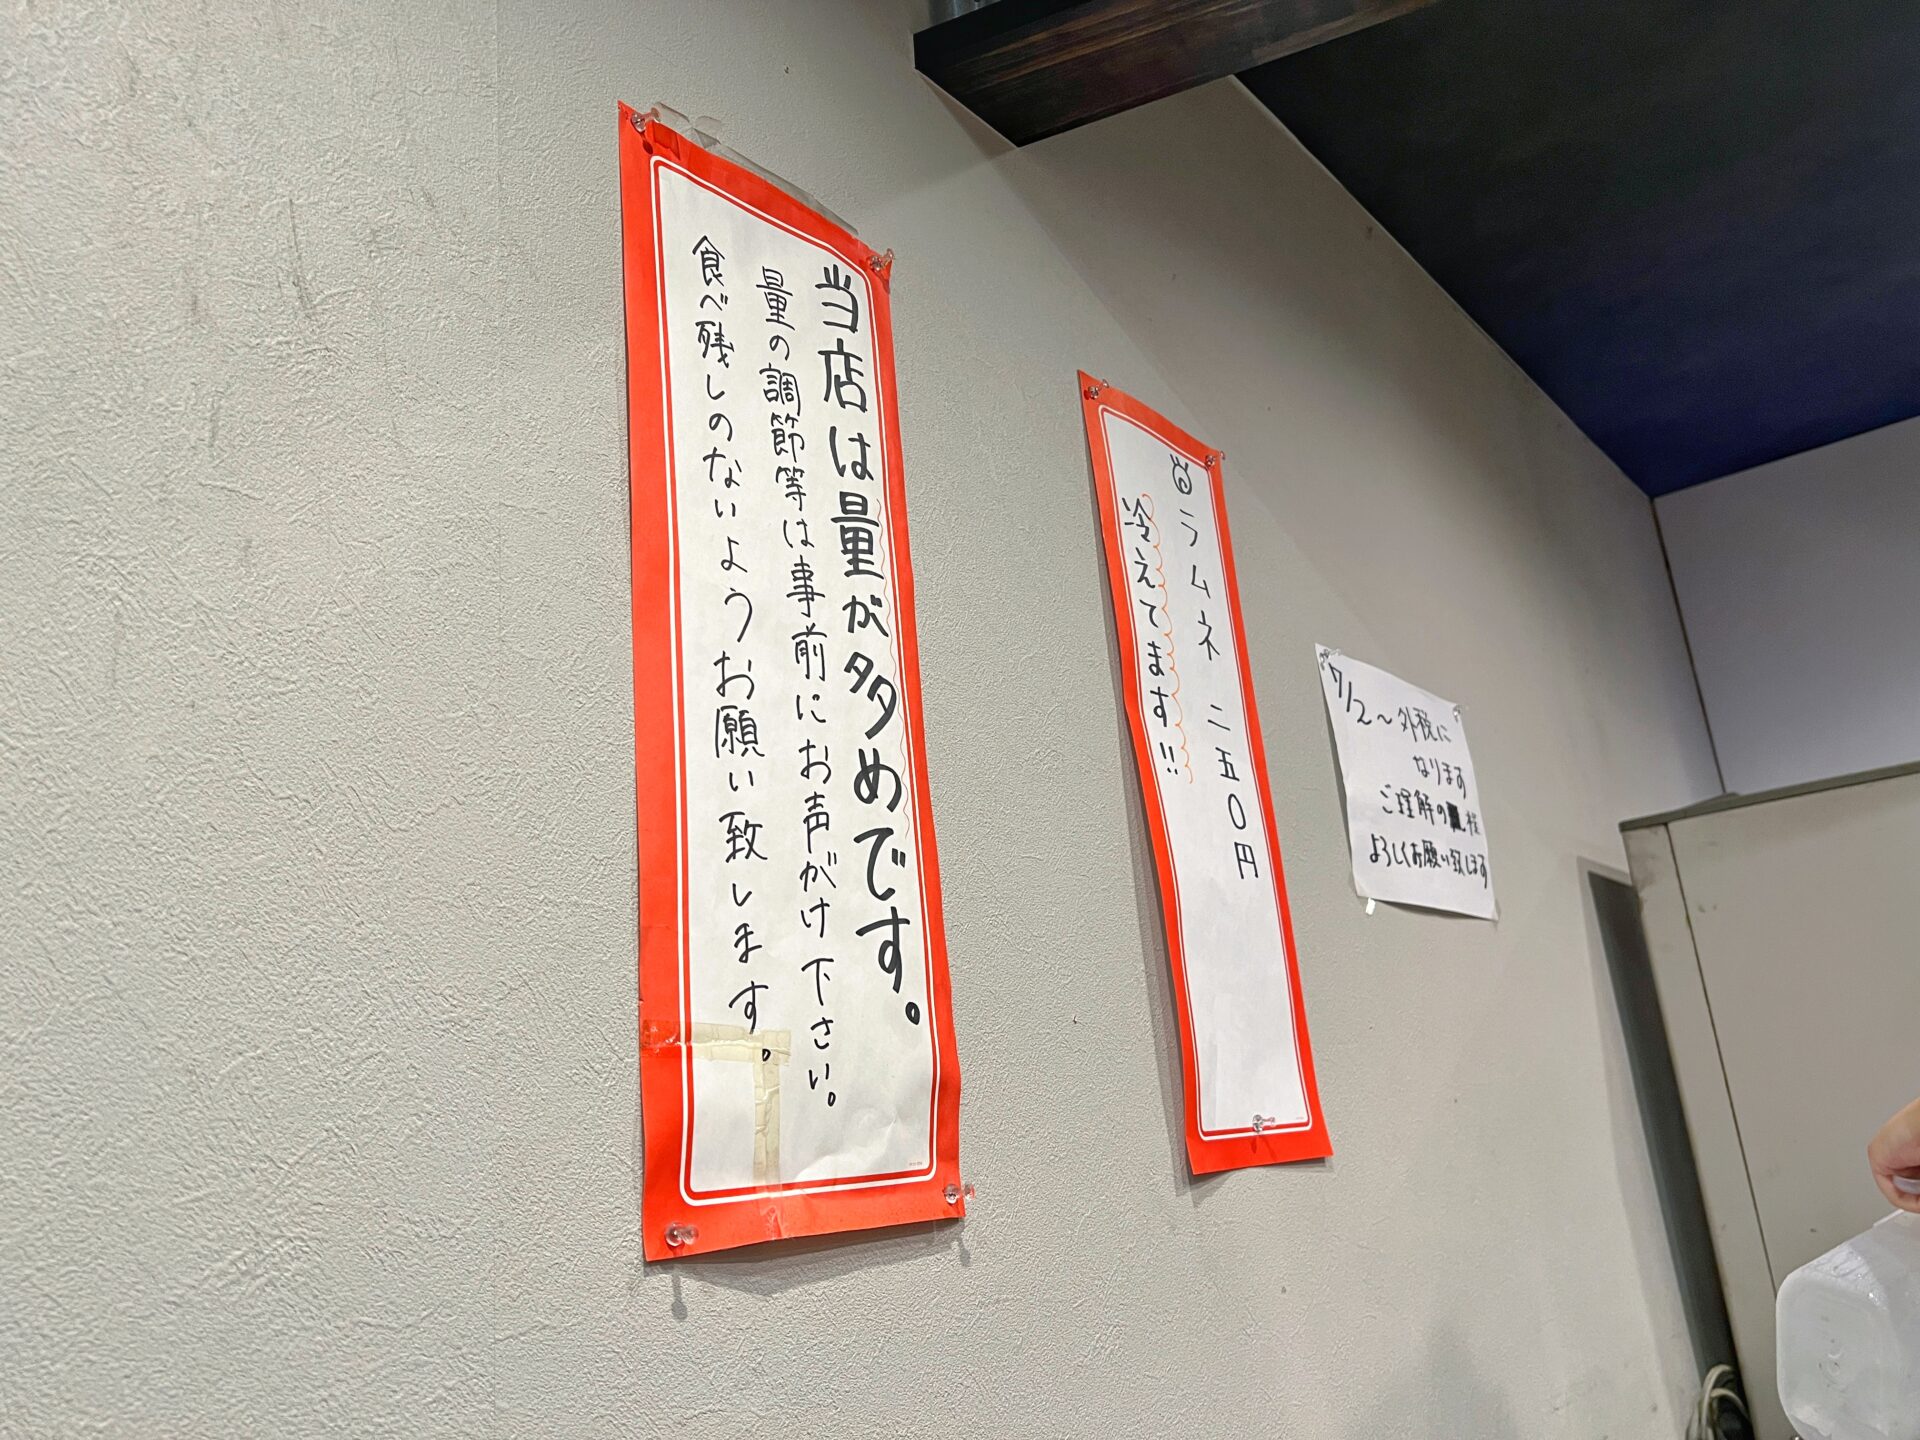 当店は量が多めです。
量の調節等は事前にお声がけ下さい。
食べ残しのないようお願い致します。
ラムネ 二五〇円
冷えてます!!
7/2〜外税に
なります
ご理解の程
よろしくお願い致します